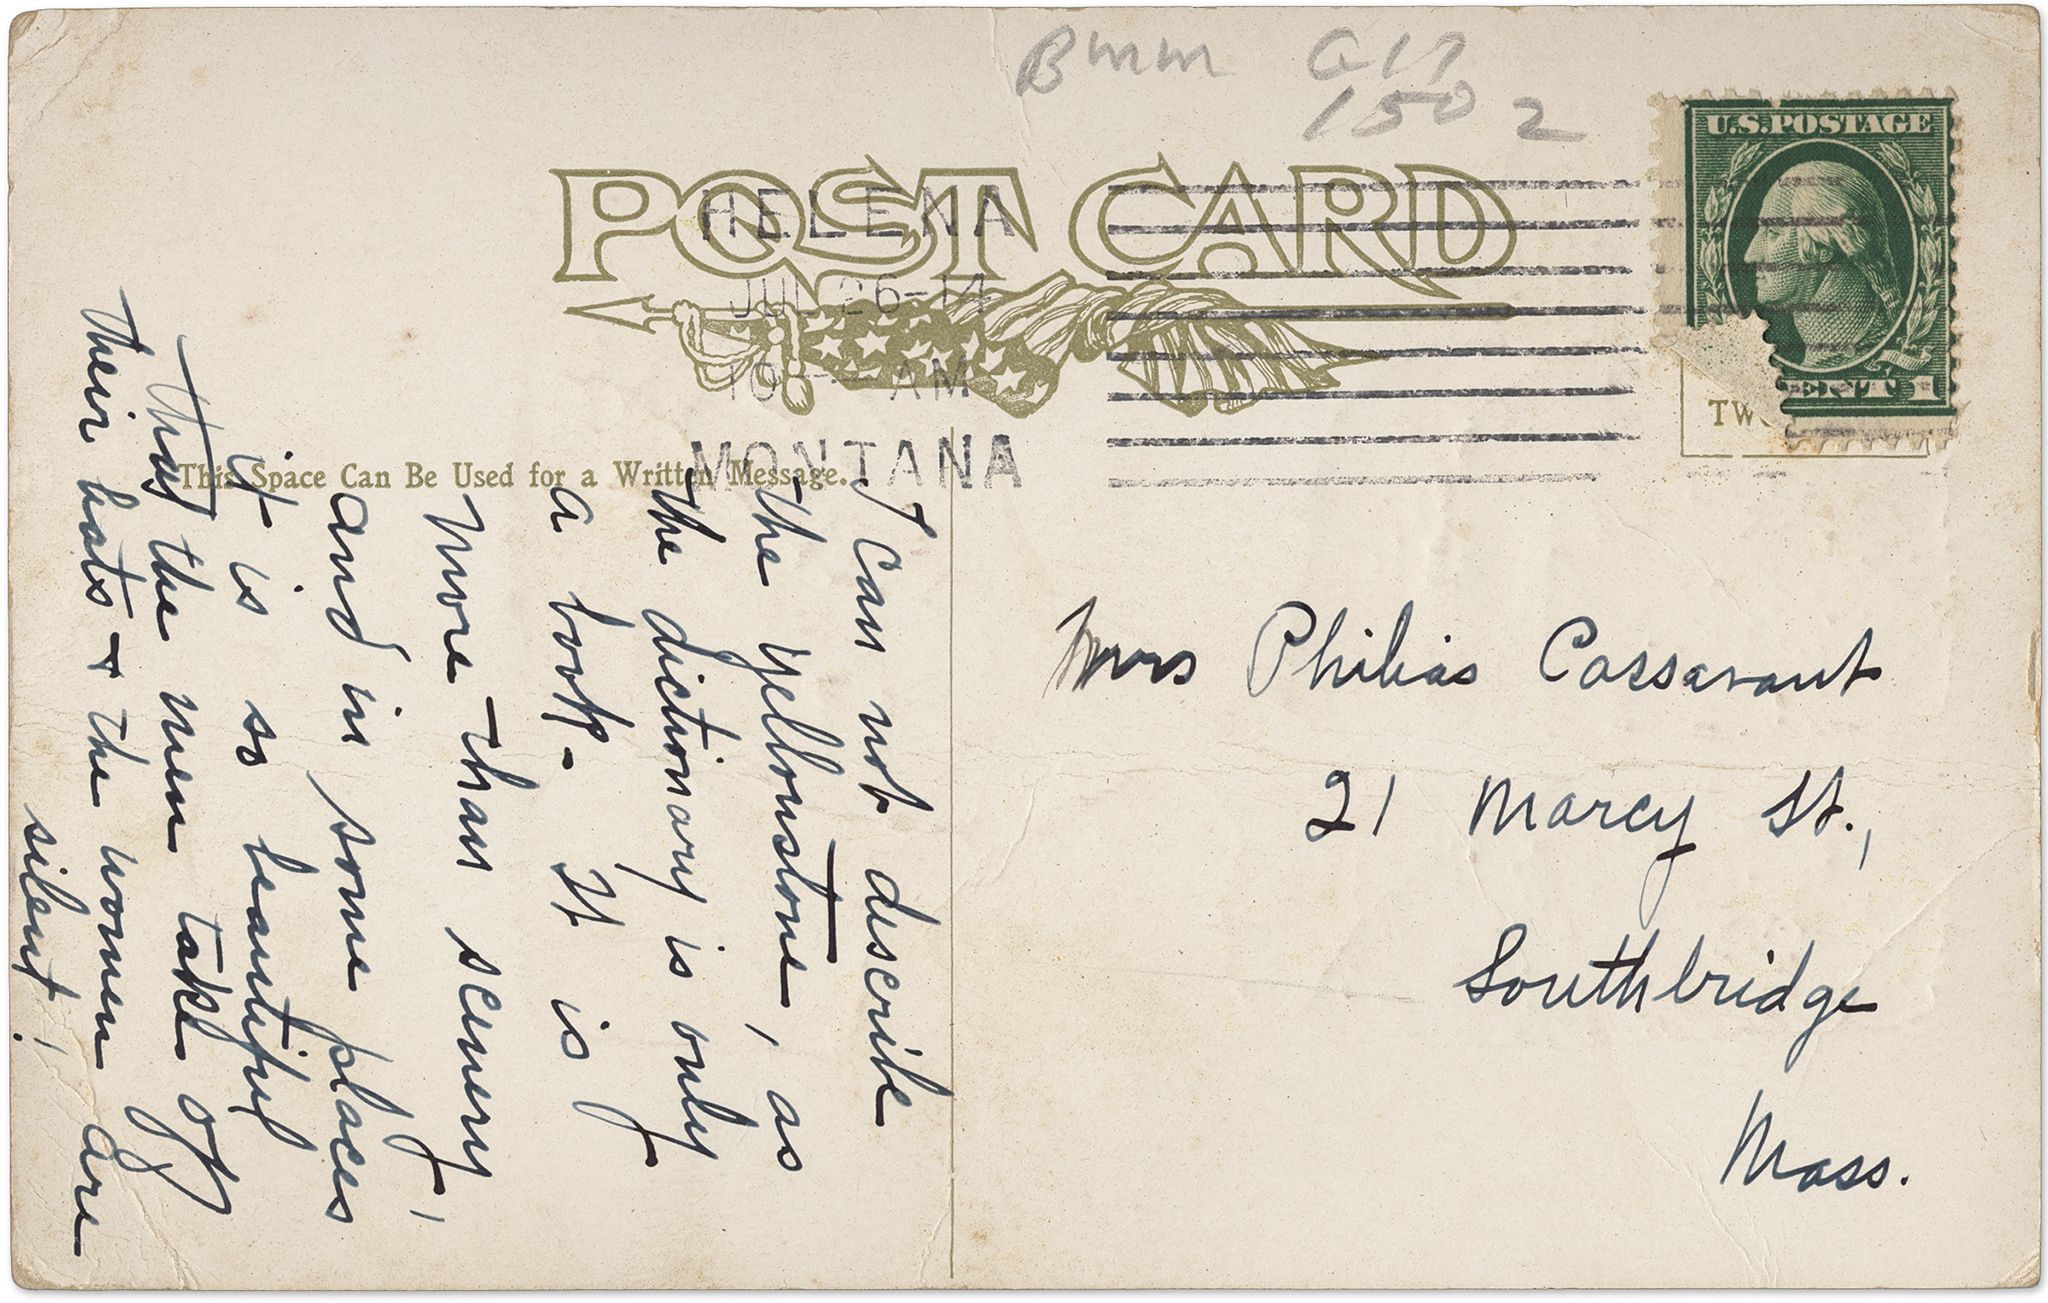 Bmm G17
150 2
POST CARD
HELENA
JUL 26-14
10 — AM
MONTANA
U.S.POSTAGE
TW
This Space Can Be Used for a Written Message.
I can not describe
the Yellowstone, as
the dictionary is only
a book. It is
more than scenery,
and in some places
it is so beautiful
that the men take off
their hats + the women are
silent!
Mrs Philias Cassavant
21 Marcy St.,
Southbridge
Mass.